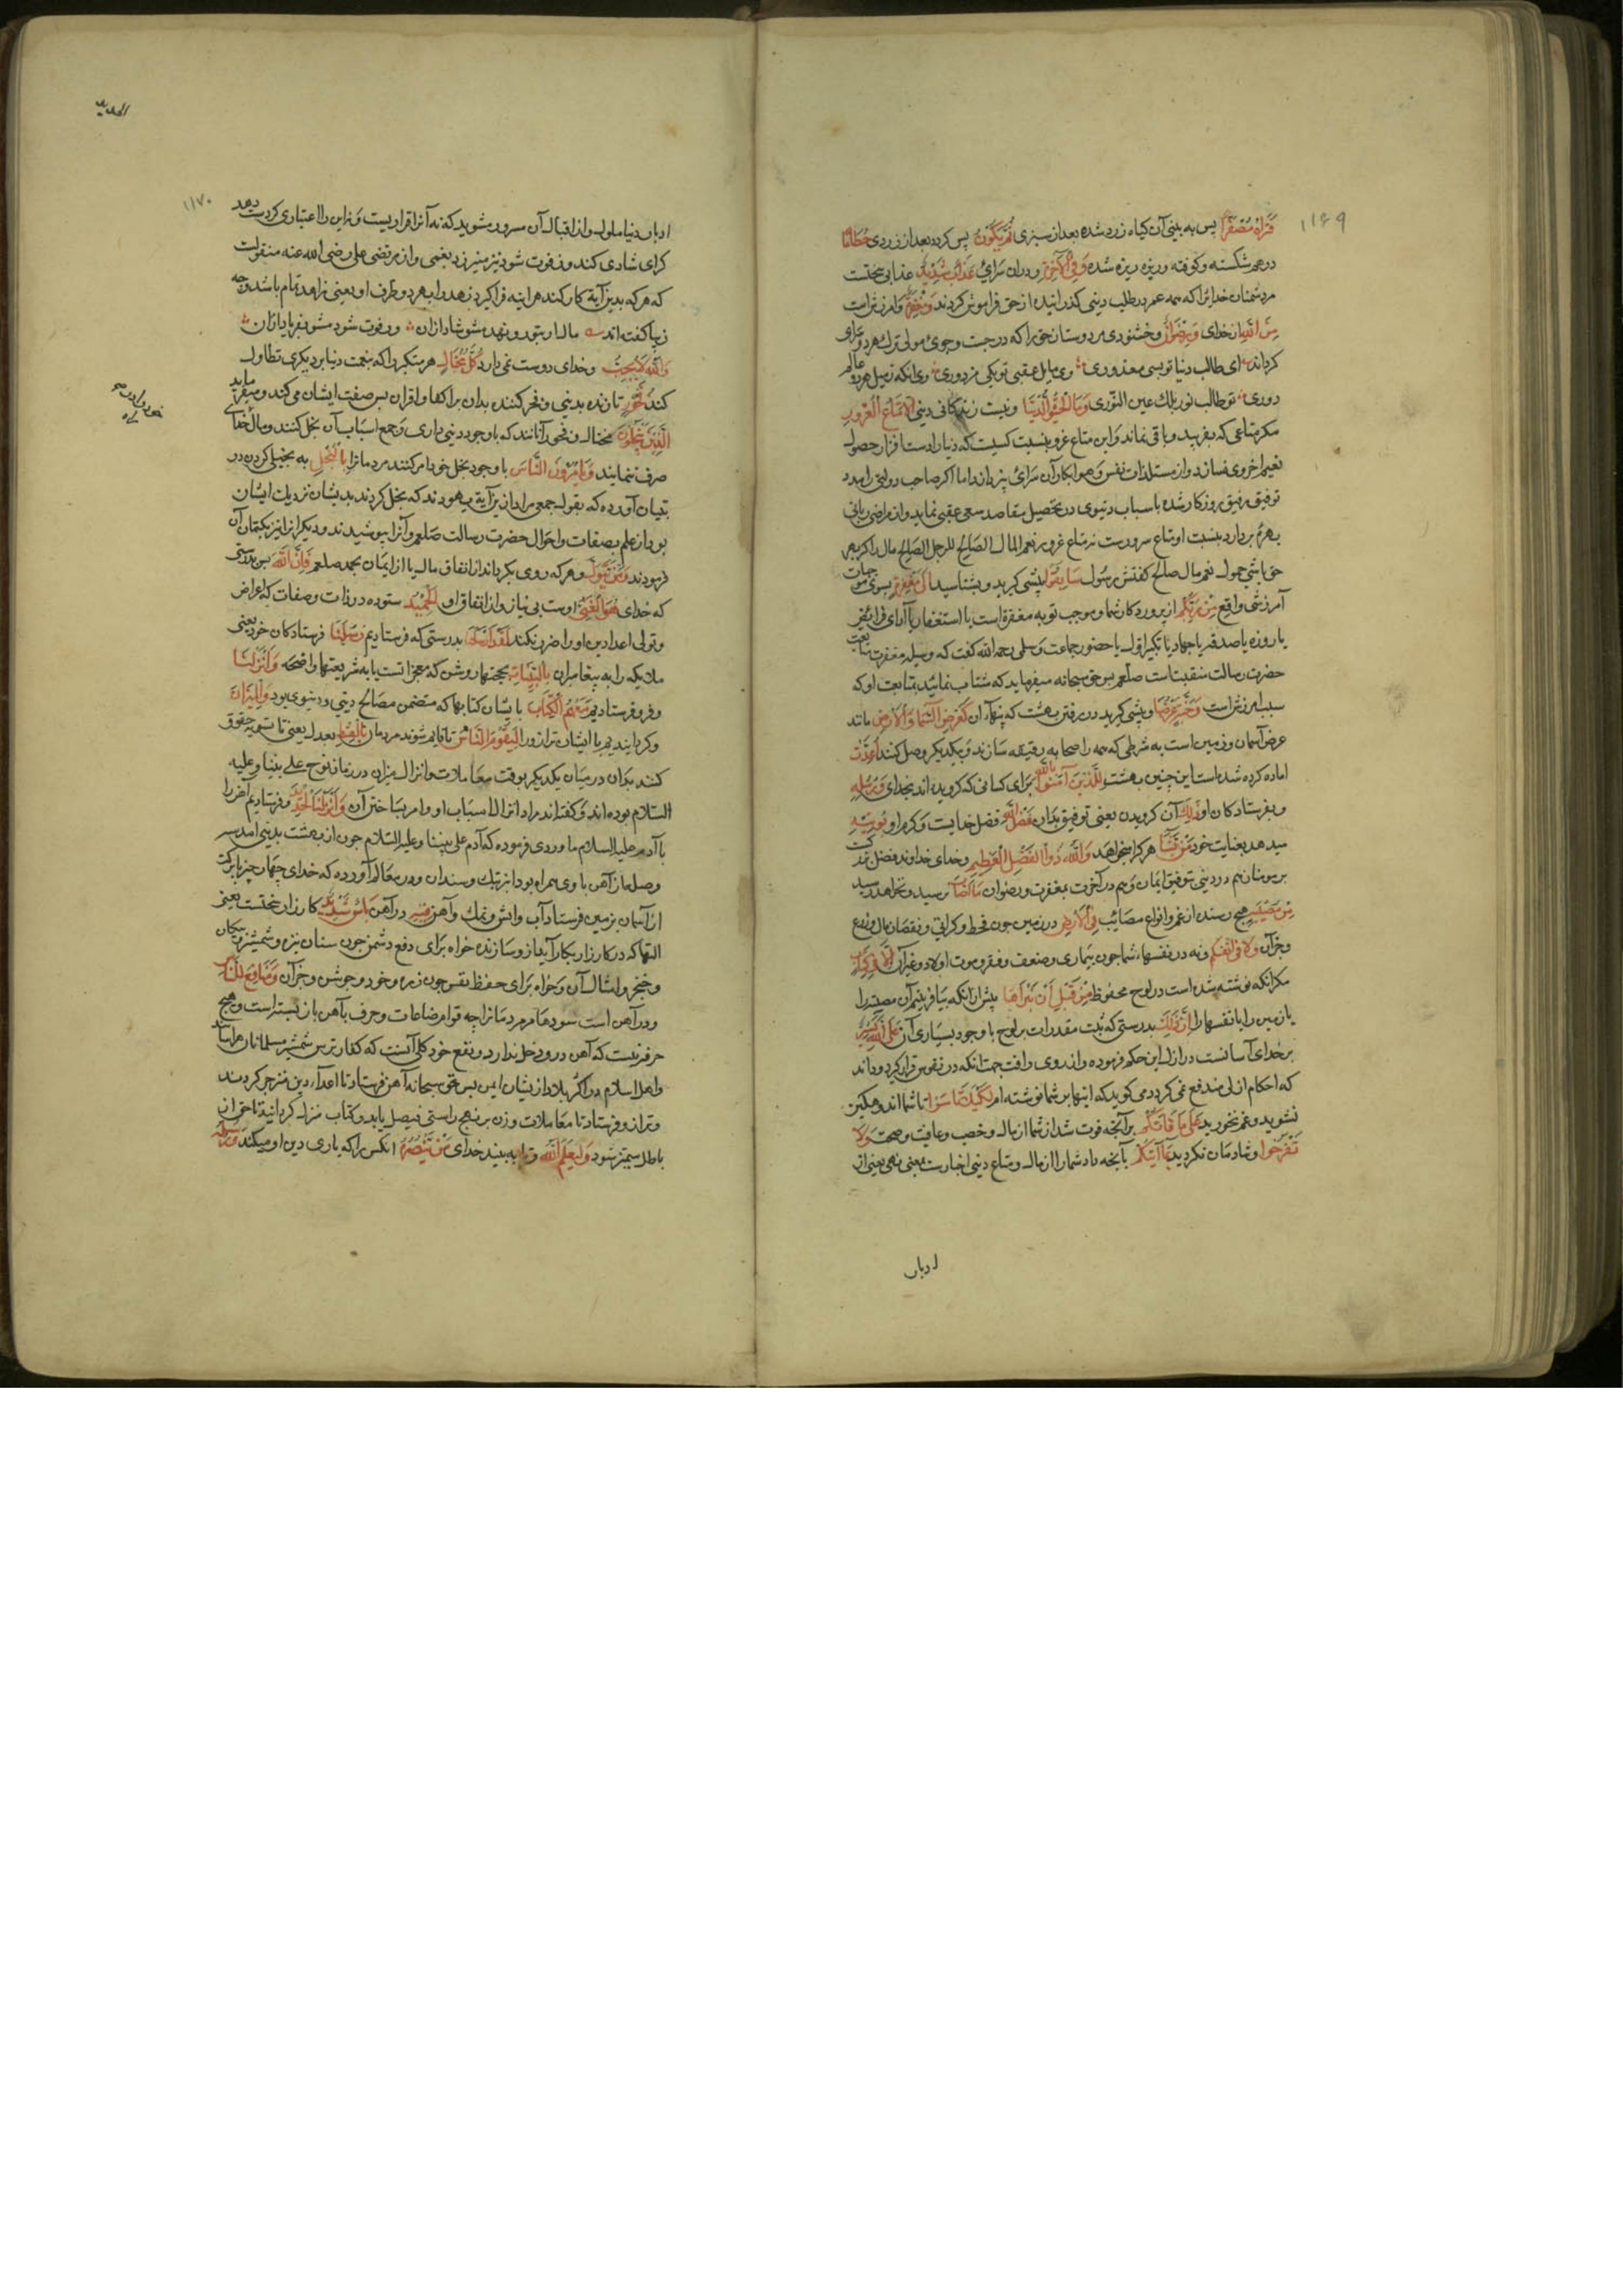 ۱۱۶۹
فَتَرَاهُ مُصْفَرًّا پس به بینی آن کیاه زرد شده بعد از سبزی ثُمَّ يَكُونُ پس کردد بعد از زردی حُطَامًا
درهم شکسته و کوفته و ریزه ریزه شده وَفِي الْآخِرَةِ و در ان سرای عَذَابٌ شَدِيدٌ عذابی سختست
مر دشمنان خدایرا که همه عمر در طلب دینی کذرانیده از حق فراموش کردند وَمَغْفِرَةٌ و امرزش است
مِنَ اللَّهِ از خدای وَرِضْوَانٌ و خشنودی مر دوستان حق را که در جست و جوی مولی ترک هر دو سرای
کرداند ای طالب دنیا تو بسی معذوری وی مایل عقبی تو یکی مزدوری وی انکه ز میل هر دو عالم
دوری تو طالب نور بلک عین النوری وَمَا الْحَيٰوةُ الدُّنْيَا و نیست زندکانی دینی إِلَّا مَتَاعُ الْغُرُورِ
مکر متاعی که بفریبد و باقی نماند و این متاع غرور بنسبت کسیست که دنیا را دست افزار حصول
نعیم اخروی نسازد و از مستلذات نفس و هوا بکار آن سرای نپردازد اما اکر صاحب دولتی را مدد
توفیق رفیق روزکار شده باسباب دنیوی در تحصیل مقاصد سعی عقبی نماید و از مراضی ربانی
بهره بردارد بنسبت او متاع سرورست نه متاع غرور نعم المال الصالح للرجل الصالح مال را کر بهر
حق باشی حمول نعم مال صالح کفتش رسول سَابِقُوا پیشی کیرید و بشتابید إِلَىٰ مَغْفِرَةٍ بسوی موجبات
آمرزشی واقع مِنْ رَبِّكُمْ از پروردکار شما و موجب توبه مغفرة است یا استغفار یا ادای فرایض
یا روزه یا صدقه یا جهاد یا تکبیر اول یا حضور جماعت و سلمی رحمه الله کفت که وسیله مغفرت متابعت
حضرت رسالت منقبتاست صلعم پس حق سبحانه میفرماید که شتاب نمائید بمتابعت او که
سبب امرزش است وَجَنَّةٍ عَرْضُهَا و پیشی کیرید در رفتن بهشت که پهناء ان كَعَرْضِ السَّمَاءِ وَالْأَرْضِ مانند
عرض آسمان و زمین است به شرطی که همه را صحایه رقیقه سازند و بیکدیکر وصل کنند أُعِدَّتْ
اماده کرده شده است این چنین بهشت لِلَّذِينَ آمَنُوا بِاللَّهِ برای کسانی که کرویده اند بخدای وَرُسُلِهِ
و بفرستادکان او ذَٰلِكَ آن کرویدن یعنی توفیق بدان فَضْلُ اللَّهِ فضل خدایست و کرم او يُؤْتِيهِ
میدهد بعنایت خود مَنْ يَشَاءُ هر کرا میخواهد وَاللَّهُ ذُو الْفَضْلِ الْعَظِيمِ و خدای خداوند فضل بزرکست
بر مومنان هم در دینی بتوفیق ایمان و هم در آخرت بمغفرت و رضوان مَا أَصَابَ نرسید و نخواهد رسید
مِنْ مُصِيبَةٍ هیچ رسنده از غم و انواع مصائب فِي الْأَرْضِ در زمین جون قحط و کرانی و نقصان مال و زرع
و جز آن وَلَا فِي أَنْفُسِكُمْ و نه در نفسهاء شما جون بیماری و ضعف و فقر و موت اولاد و غیر آن إِلَّا فِي كِتَابٍ
مکر انکه نوشته شده است در لوح محفوظ مِنْ قَبْلِ أَنْ نَبْرَأَهَا پیش از انکه بیافرینیم آن مصیبت را
یا زمین را یا نفسها را إِنَّ ذَٰلِكَ بدرستی که ثبت مقدرات بر لوح با وجود بسیاری آن عَلَى اللَّهِ يَسِيرٌ
بر خدای آسانست در ازل این حکم فرموده و از روی رافت جهت انکه در نفوس قرار کیرد و داند
که احکام ازلی مندفع نمی کردد می کوید که اینها بر شما نوشته ام لِكَيْلَا تَأْسَوْا تا شما اندوهکین
نشوید و غم نخورید عَلَىٰ مَا فَاتَكُمْ بر آنچه فوت شد از شما از مال و خصب و عافیت و صحت وَلَا
تَفْرَحُوا و شادمان نکردید بِمَا آتَاكُمْ بآنچه داد شما را از مال و متاع دینی اخبارست بمعنی نهی یعنی از
ادبار
الحدید
۱۱۷۰
ادبار دنیا ملول و از اقبال آن مسرور مشوید که نه آنرا قراریست و نه این را اعتباری کر دست دهد
کرای شادی کند ور فوت شود نیز نیرزد بغمی و از مرتضی علی رضی الله عنه منقولست
که هر که بدین آیة کار کند هراینه فرا کیرد زهد را بهر دو طرف او یعنی زاهد تمام باشد وچه
زیبا کفته اند مال ار بتو رو نهد مشو شاد ازان ور فوت شود مشو بفریاد ازان
وَاللَّهُ لَا يُحِبُّ و خدای دوست نمی دارد كُلَّ مُخْتَالٍ هر متکبر را که بنعمت دنیا بر دیکری تطاول
کند فَخُورٍ نازنده بدینی و فخر کننده بدان بر اکفا و اقران پس صفت ایشان می کند و میفرماید
الَّذِينَ يَبْخَلُونَ مختال و فخور آنانند که باوجود دینی داری و جمع اسباب آن بخل کنند و مال خدای
صرف ننمایند وَيَأْمُرُونَ النَّاسَ با وجود بخل خود امر کنند مردمانرا بِالْبُخْلِ به بخیلی کردن در
تبیان آورده که بقول جمعی مراد ازین آیة یهودند که بخل کردند بدیشان نزدیک ایشان
بود از علم بصفات و احوال حضرت رسالت صلعم و آنرا بپوشیدند و دیکرانرا نیز بکتمان آن
فرمودند وَمَنْ يَتَوَلَّ و هر که روی بکرداند از انفاق مال یا از ایمان بمحمد صلعم فَإِنَّ اللَّهَ پس بدرستی
که خدای هُوَ الْغَنِيُّ اوست بی نیاز و از انفاق او الْحَمِيدُ ستوده در ذات و صفات که اعراض
و تولی اعدا دین او را ضرر نکند لَقَدْ أَرْسَلْنَا بدرستی که فرستادیم رُسُلَنَا فرستادکان خود یعنی
ملایکه را به پیغامبران بِالْبَيِّنَاتِ بحجتهاء روشن که معجزاتست یا به شریعتهاء واضحه وَأَنْزَلْنَا
و فرو فرستادیم مَعَهُمُ الْكِتَابَ با یشان کتابها که متضمن مصالح دینی و دنیوی بود وَالْمِيزَانَ
و کردانیدیم با ایشان ترازو را لِيَقُومَ النَّاسُ تا قایم شوند مردمان بِالْقِسْطِ بعدل یعنی تا تسویه حقوق
کنند بدان در میان یکدیکر بوقت معاملات و انزال میزان در زمان نوح علی نبینا و علیه
السلام بوده اند و کفته اند مراد انزال اسباب او و امر بساختن آن وَأَنْزَلْنَا الْحَدِيدَ و فرستادیم آهن را
با آدم علیه السلام ماوردی فرموده که آدم علی نبینا و علیه السلام جون از بهشت بدینی امد سر
وصله از آهن با وی همراه بود انبر پتک و سندان و در معالم آورده که خدای چهار چیز بابرکت
از آسمان بزمین فرستاد آب و اتش و نمک و آهن فِيهِ در آهن بَأْسٌ شَدِيدٌ کارزار سختست یعنی
التها که در کارزار بکار آید از و سازند خواه برای دفع دشمن جون سنان نیزه و شمشیر و پیکان
و خنجر و امثال آن و خواه برای حفظ نفس جون زره و خود و جوشن و جز آن وَمَنَافِعُ لِلنَّاسِ
و در آهن است سودها مر مردمانرا چه قوام صناعات و حرف بآهن باز بسته است و هیچ
حرفه نیست که آهن در و دخل ندارد و نفع خود کلی آنست که کفار ترس شمشیر مسلمانان هراسانند
و اهل اسلام در اکثر بلاد از یشان ایمن پس حق سبحانه آهن فرستاد تا اعداء دین منزجر کردند
و ترازو فرستاد تا معاملات وزن بر نهج راستی فیصل یابد و کتاب منزل کردانید تا حق از
باطل متمیز شود وَلِيَعْلَمَ اللَّهُ و تا به بیند خدای مَنْ يَنْصُرُهُ انکس را که یاری دین او میکند وَرُسُلَهُ